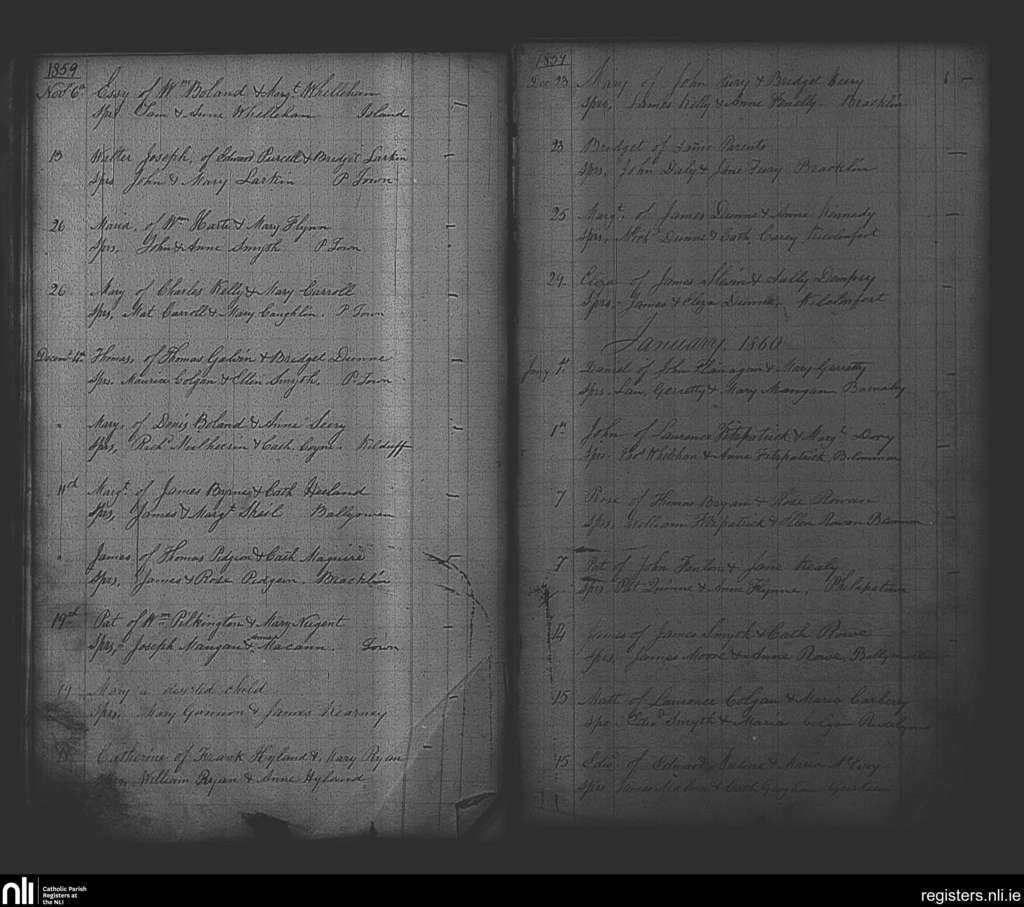 1859
Novr 6th Essy of Wm Boland & Margt Whelleham
Sprs Tam & Anne Whelleham Island
13 Walter Joseph, of Edward Purcell & Bridget Larkin
Sprs John & Mary Larkin P Town
26 Maria, of Wm Harte & Mary Flynn
Sprs, John & Anne Smyth P Town
26 Mary of Charles Kelly & Mary Carroll
Sprs, Mat Carroll & Mary Coughlin. P Town
Decemr 4th Thomas, of Thomas Galvin & Bridget Dunne
Sprs. Maurice Colgan & Ellen Smyth. P. Town
" Mary, of Denis Boland & Anne Seery
Sprs, Richd Mulheerin & Cath. Coyne. Kilduff
11th Margt of James Byrnes & Cath
Sprs, James & Margt Skeil Ballyowen
" James of Thomas Pidgeon & Cath Maguire
Sprs, James & Rose Pidgeon. Bracklin
19th Pat of Wm Pilkington & Mary Nugent
Sprs, Joseph Mangan & Macann. Town
19 Mary a deserted child
Sprs, Mary Gannon & James Kearney
Catherine of Frank Hyland & Mary Ryan
William Ryan & Anne Hyland
1859
Dec 23 Mary of John & Bridget
Sprs, James Kelly & Anne Bracklin
23 Bridget of Same Parents
Sprs, John Daly & Jane Bracklin
25 Margt of James Dunne & Anne Kennedy
Sprs, Dunne & Cath Carey
29 Eliza of James & Sally Dempsey
Sprs. James & Eliza Dunne.
January 1860
Jany 1st Daniel of John Flanagan & Mary Gerretty
Sprs Lau, Gerretty & Mary Mangan Barnaby
1st John of Laurence Fitzpatrick & Margt Dory
Sprs. Whelehan & Anne Fitzpatrick,
7 Rose of Thomas Bryan & Rose Rowan
Sprs William Fitzpatrick & Ellen Rowan
7 Pat of John & Jane Healy
Sprs Pat Quinne & Anne Flynne, Philipstown
14 James of James Smyth & Cath Rowe
Sprs, James Moore & Anne Rowe
15 Matt of Laurence Colgan & Maria Carbery
Sprs Smyth & Maria Colgan
15 Edwd of Edward & Maria McEvoy
Sprs James & Cath
nli
Catholic Parish
Registers at
the NLI
registers.nli.ie